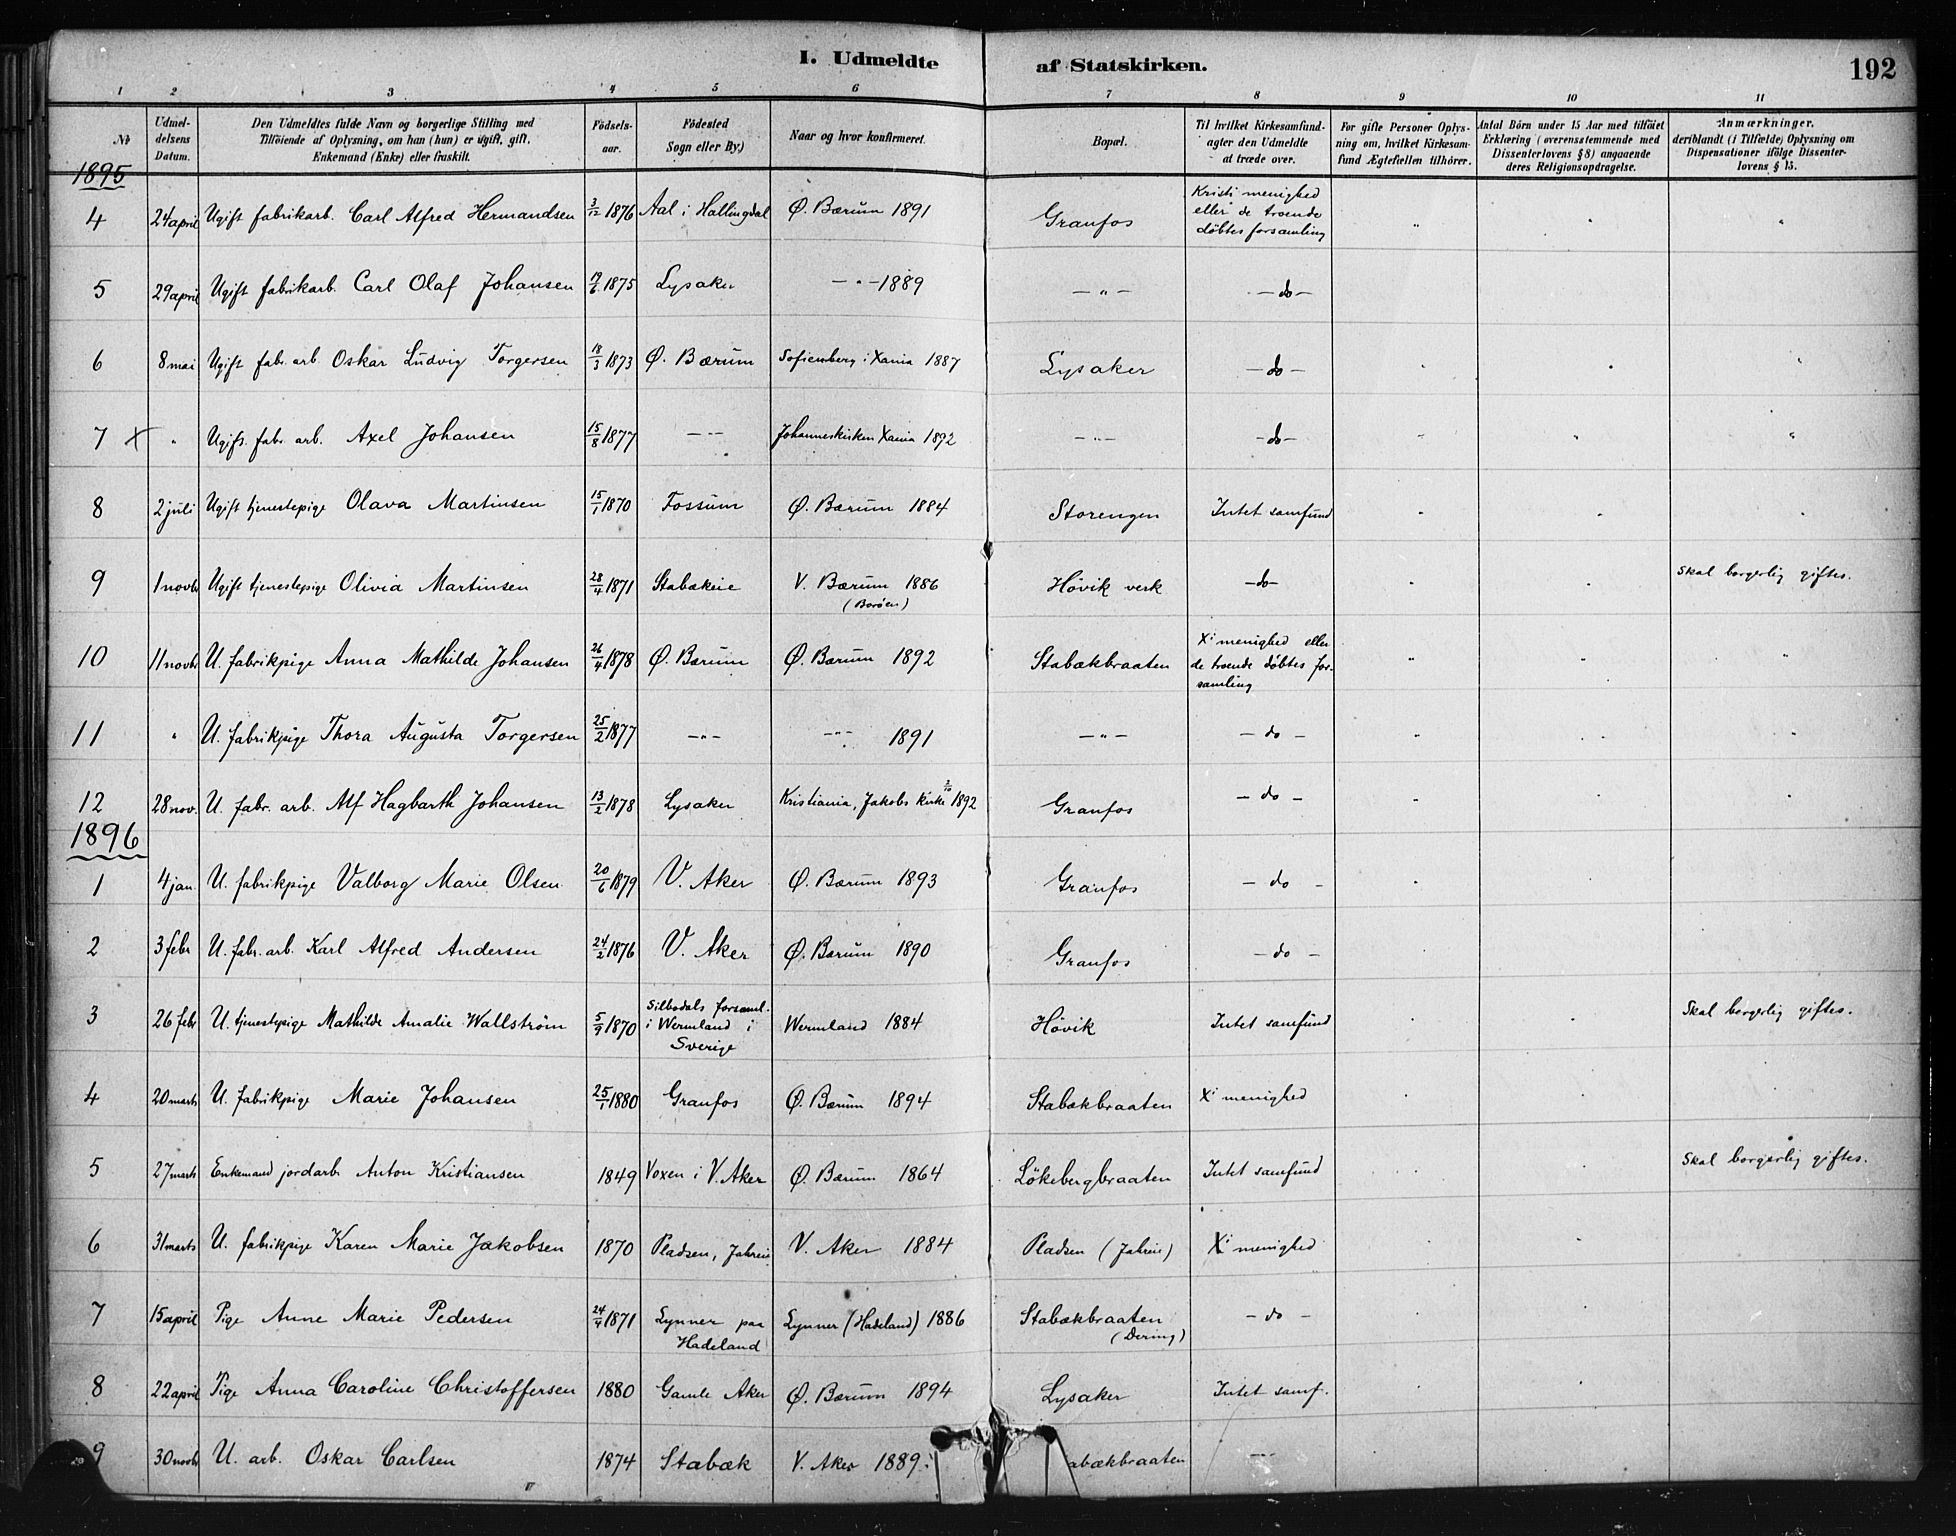 I. Udmeldte af Statskirken. 192
1 2 3 4 5 6 7 8 9 10 11
№ | Udmeldelsens Datum. | Den Udmeldtes fulde Navn og borgerlige Stilling med Tilföiende af Oplysning, om han (hun) er ugift, gift, Enkemand (Enke) eller fraskilt. | Födselsaar. | Födested Sogn eller By.) | Naar og hvor konfirmeret. | Bopæl. | Til hvilket Kirkesamfund agter den Udmeldte at træde over. | For gifte Personer Oplysning om, hvilket Kirkesamfund Ægtefællen tilhörer. | Antal Börn under 15 Aar med tilföiet Erklæring (overensstemmende med Dissenterlovens § 8) angaaende deres Religionsopdragelse. | Anmærkninger, deriblandt (i Tilfælde) Oplysning om Dispensationer ifölge Dissenterlovens § 15.
1895
4 | 24 april | Ugift fabrikarb. Carl Alfred Hermandsen | 3/12 1876 | Aal i Hallingdal | Ø. Bærum 1891 | Granfos | Kristi menighed eller de troende döbtes forsamling | " | " | "
5 | 29 april | Ugift fabrikarb. Carl Olaf Johansen | 19/6 1875 | Lysaker | — " — 1889 | — " — | — do —
6 | 8 mai | Ugift fabr. arb Oskar Ludvig Torgersen | 18/3 1873 | Ø. Bærum | Sofienberg i Xania 1887 | Lysaker | — do — | " | " | "
7 X | " | Ugift fabr arb. Axel Johansen | 15/8 1877 | — " — | Johanneskirken Xania 1892 | — " — | — do — | " | " | "
8 | 2 juli | Ugift tjenestepige Olava Martinsen | 15/1 1870 | Fossum | Ø. Bærum 1884 | Storengen | Intet samfund | " | " | "
9 | 1 novbr | Ugift tjenestepige Olivia Martinsen | 28/4 1871 | Stabækeie | V. Bærum 1886 (Boröen) | Hövik verk | — do — | " | " | Skal borgerlig giftes.
10 | 11 novbr | U. fabrikpige Anna Mathilde Johansen | 26/4 1878 | Ø. Bærum | Ø. Bærum 1892 | Stabækbraaten | Xi menighed eller de troende döbtes forsamling | " | " | "
11 | " | U. fabrikpige Thora Augusta Torgersen | 25/2 1877 | — " — | — " — 1891 | — " — | — do — | " | " | "
12 | 28 nov. | U. fabr. arb. Alf Hagbarth Johansen | 13/2 1878 | Lysaker | Kristiania, Jakobs kirke 2/10 1892 | Granfos | — do — | " | " | "
1896
1 | 4 jan. | U. fabrikpige Valborg Marie Olsen | 20/6 1879 | V. Aker | Ø. Bærum 1893 | Granfos | — do —
2 | 3 febr | U. fabr. arb. Karl Alfred Andersen | 24/2 1876 | V. Aker | Ø. Bærum 1890 | Granfos | — do —
3 | 26 febr | U. tjenestepige Mathilde Amalie Wallström | 5/9 1870 | Silbodals forsaml. i Wermland i Sverige | Wermland 1884 | Hövik | Intet samfund | " | " | Skal borgerlig giftes.
4 | 20 marts | U. fabrikpige Marie Johansen | 25/1 1880 | Granfos | Ø. Bærum 1894 | Stabækbraaten | Xi menighed
5 | 27 marts | Enkemand jordarb. Anton Kristiansen | 1849 | Voxen i V. Aker | Ø. Bærum 1864 | Lökebergbraaten | Intet samfund | " | " | Skal borgerlig giftes.
6 | 31 marts | U. fabrikpige Karen Marie Jakobsen | 1870 | Pladsen, | V. Aker 1884 | Pladsen | Xi menighed
7 | 15 april | Pige Anne Marie Pedersen | 24/4 1871 | Lynner paa Hadeland | Lynner (Hadeland) 1886 | Stabækbraaten | — do —
8 | 22 april | Pige Anna Caroline Christoffersen | 1880 | Gamle Aker | Ø. Bærum 1894 | Lysaker | Intet samf.
9 | 30 novbr | U. arb. Oskar Carlsen | 1874 | Stabæk | V. Aker 1889. | abækbraaten | — " —